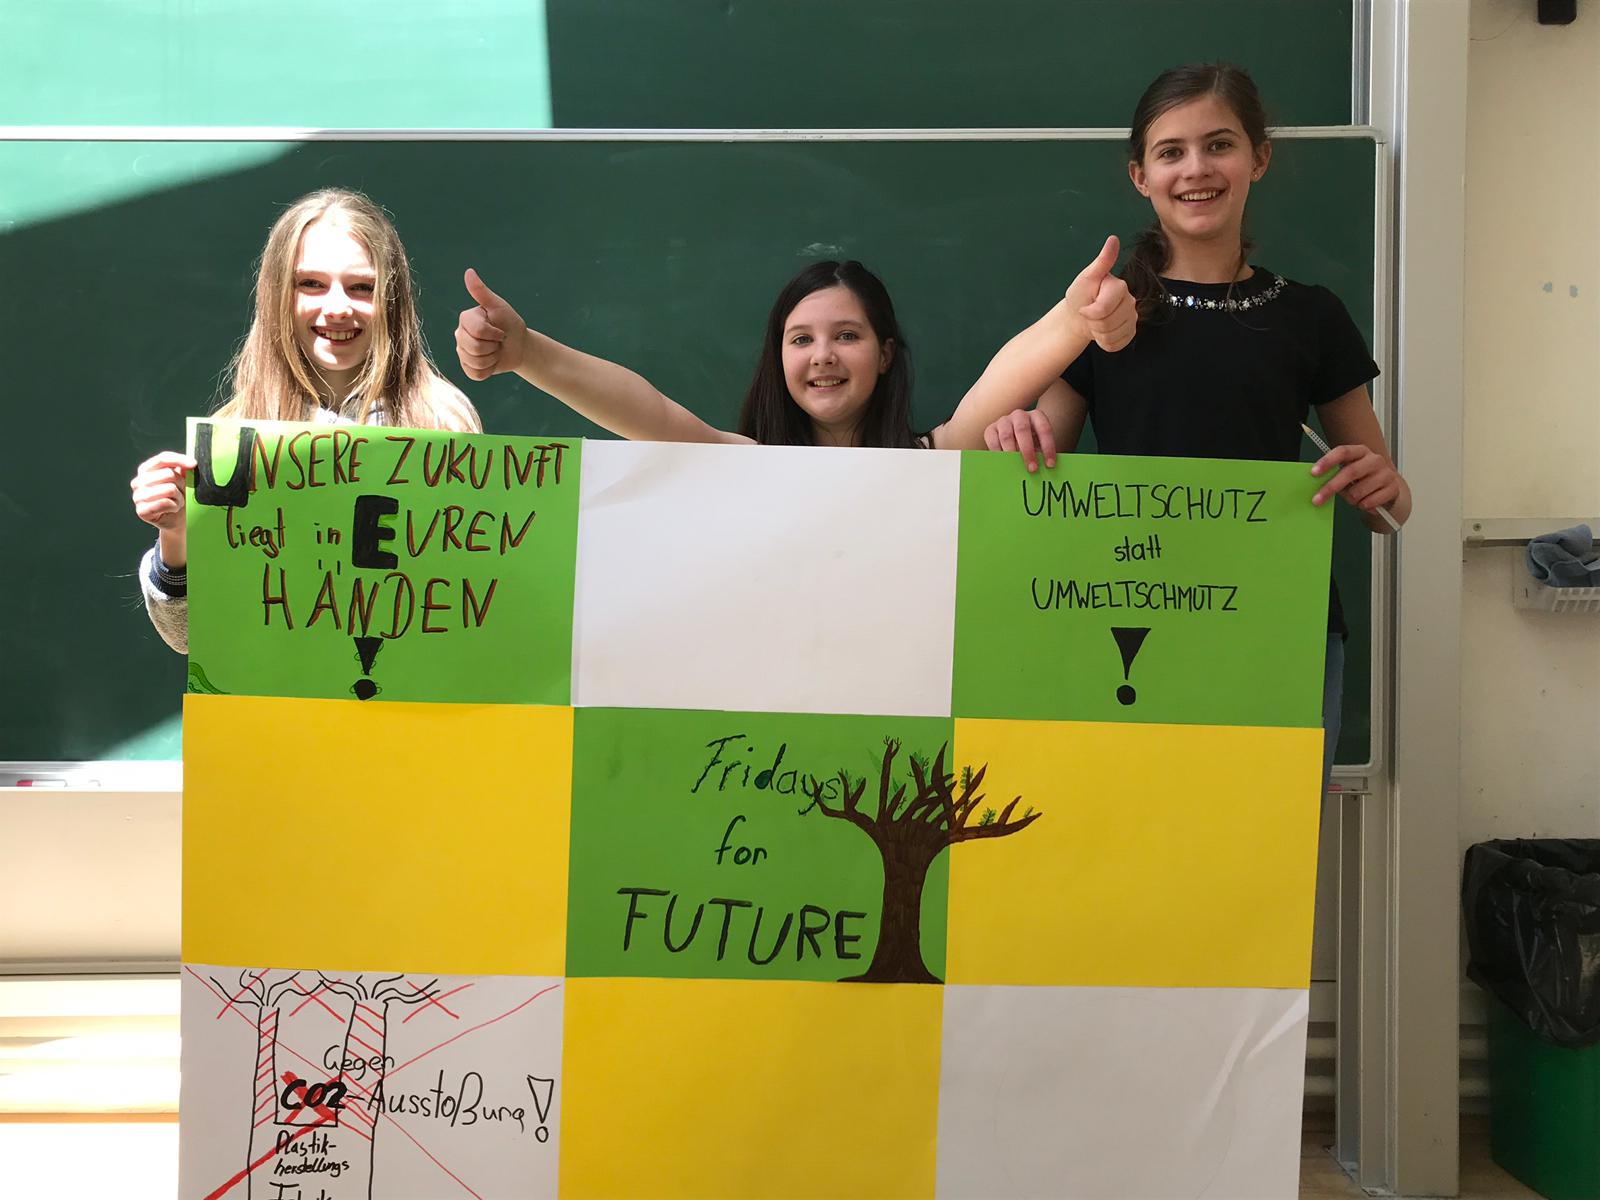 UNSERE ZUKUNFT
liegt in EUREN
HÄNDEN
!
UMWELTSCHUTZ
statt
UMWELTSCHMUTZ
!
Fridays
for
FUTURE
Gegen
CO2-Ausstoßung!
Plastik-
herstellungs